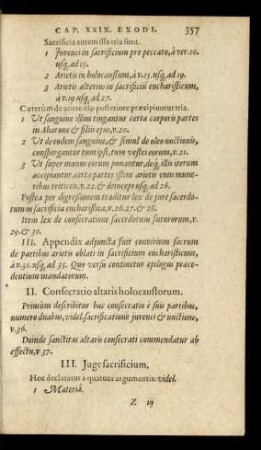 CAP. XXIX. EXODI. 357
Sacrificia autem illa tria sunt.
1 Juvenci in sacrificium pro peccato, à ver.10.
usq, ad 15.
2 Arietis in holocaustum, à v.15. usq, ad 19.
3 Arietis alterius in sacrificiū eucharisticum,
à v.19. usq, ad 27.
Cæterùm de ariete isto posteriore præcipiuntur tria.
1 Ut sanguine illius tingantur certæ corporis partes
in Aharone & filiis ejus, v.20.
2 Ut de eodem sanguine, & simul de oleo unctionis,
conspergantur tum ipsi, tum vestes eorum, v.21.
3 Ut super manus eorum ponantur, deq, illis iterum
accipiantur, certæ partes istius arietis cum mune-
ribus triticeis, v.22. & deinceps usq, ad 26.
Postea per digressionem traditur lex de jure sacerdo-
tum in sacrificia eucharistica, v.26.27. & 28.
Item lex de consecratione sacerdotum futurorum, v.
29. & 30.
III. Appendix adjuncta fuit convivium sacrum
de partibus arietis oblati in sacrificium eucharisticum,
à v.31. usq, ad 35. Quo versu continetur epilogus præce-
dentium mandatorum.
II. Consecratio altaris holocaustorum.
Primùm describitur hæc consecratio è suis partibus,
numero duabus, videl. sacrificatione juvenci & unctione,
v.36.
Deinde sanctitas altaris consecrati commendatur ab
effectu, v.37.
III. Juge sacrificium,
Hoc declaratur à quatuor argumentis: videl.
1 Materiâ.
Z iij